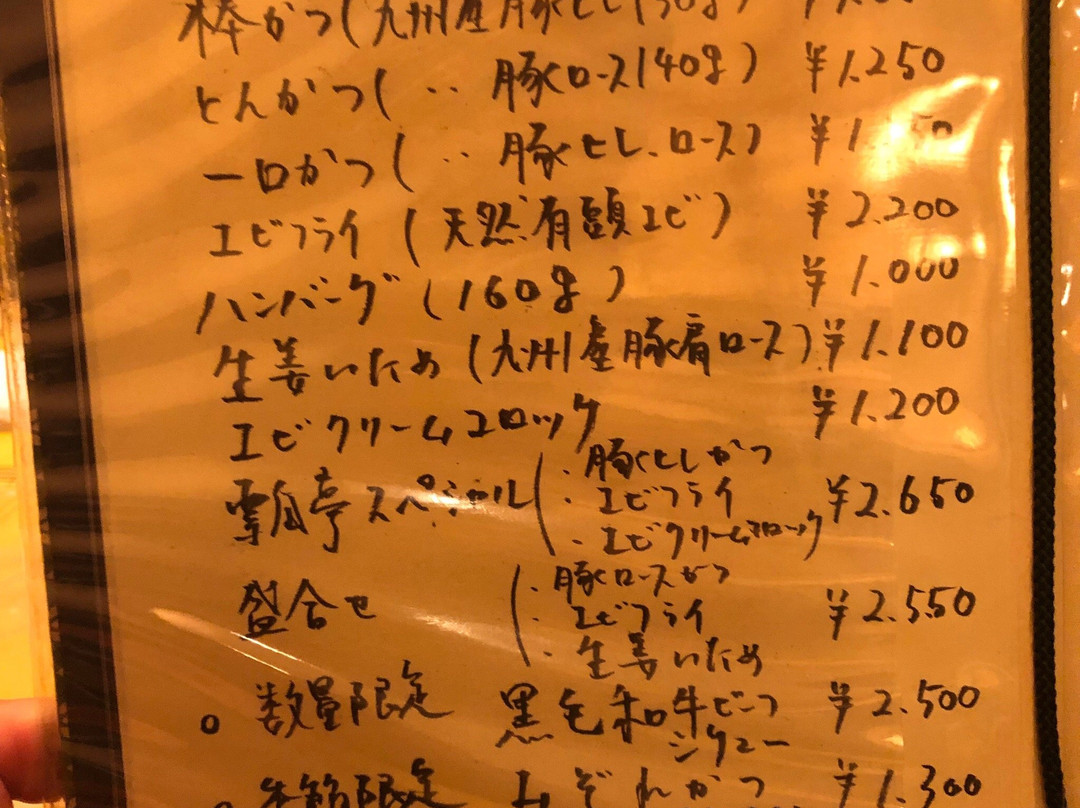 棒かつ(九州産豚ヒレ130g)
とんかつ(〃 豚ロース140g) ¥1.250
一口かつ(〃 豚ヒレ、ロース) ¥1.
エビフライ(天然有頭エビ) ¥2.200
ハンバーグ(160g) ¥1.000
生姜いため(九州産豚肩ロース) ¥1.100
エビクリームコロッケ ¥1.200
亭スペシャル ・豚ヒレかつ
・エビフライ ¥2.650
・エビクリームコロッケ
盛合せ ・豚ロースかつ
・エビフライ ¥2.550
・生姜いため
○数量限定 黒毛和牛ビーフ ¥2.500
シチュー
限定 みぞれかつ ¥1.300